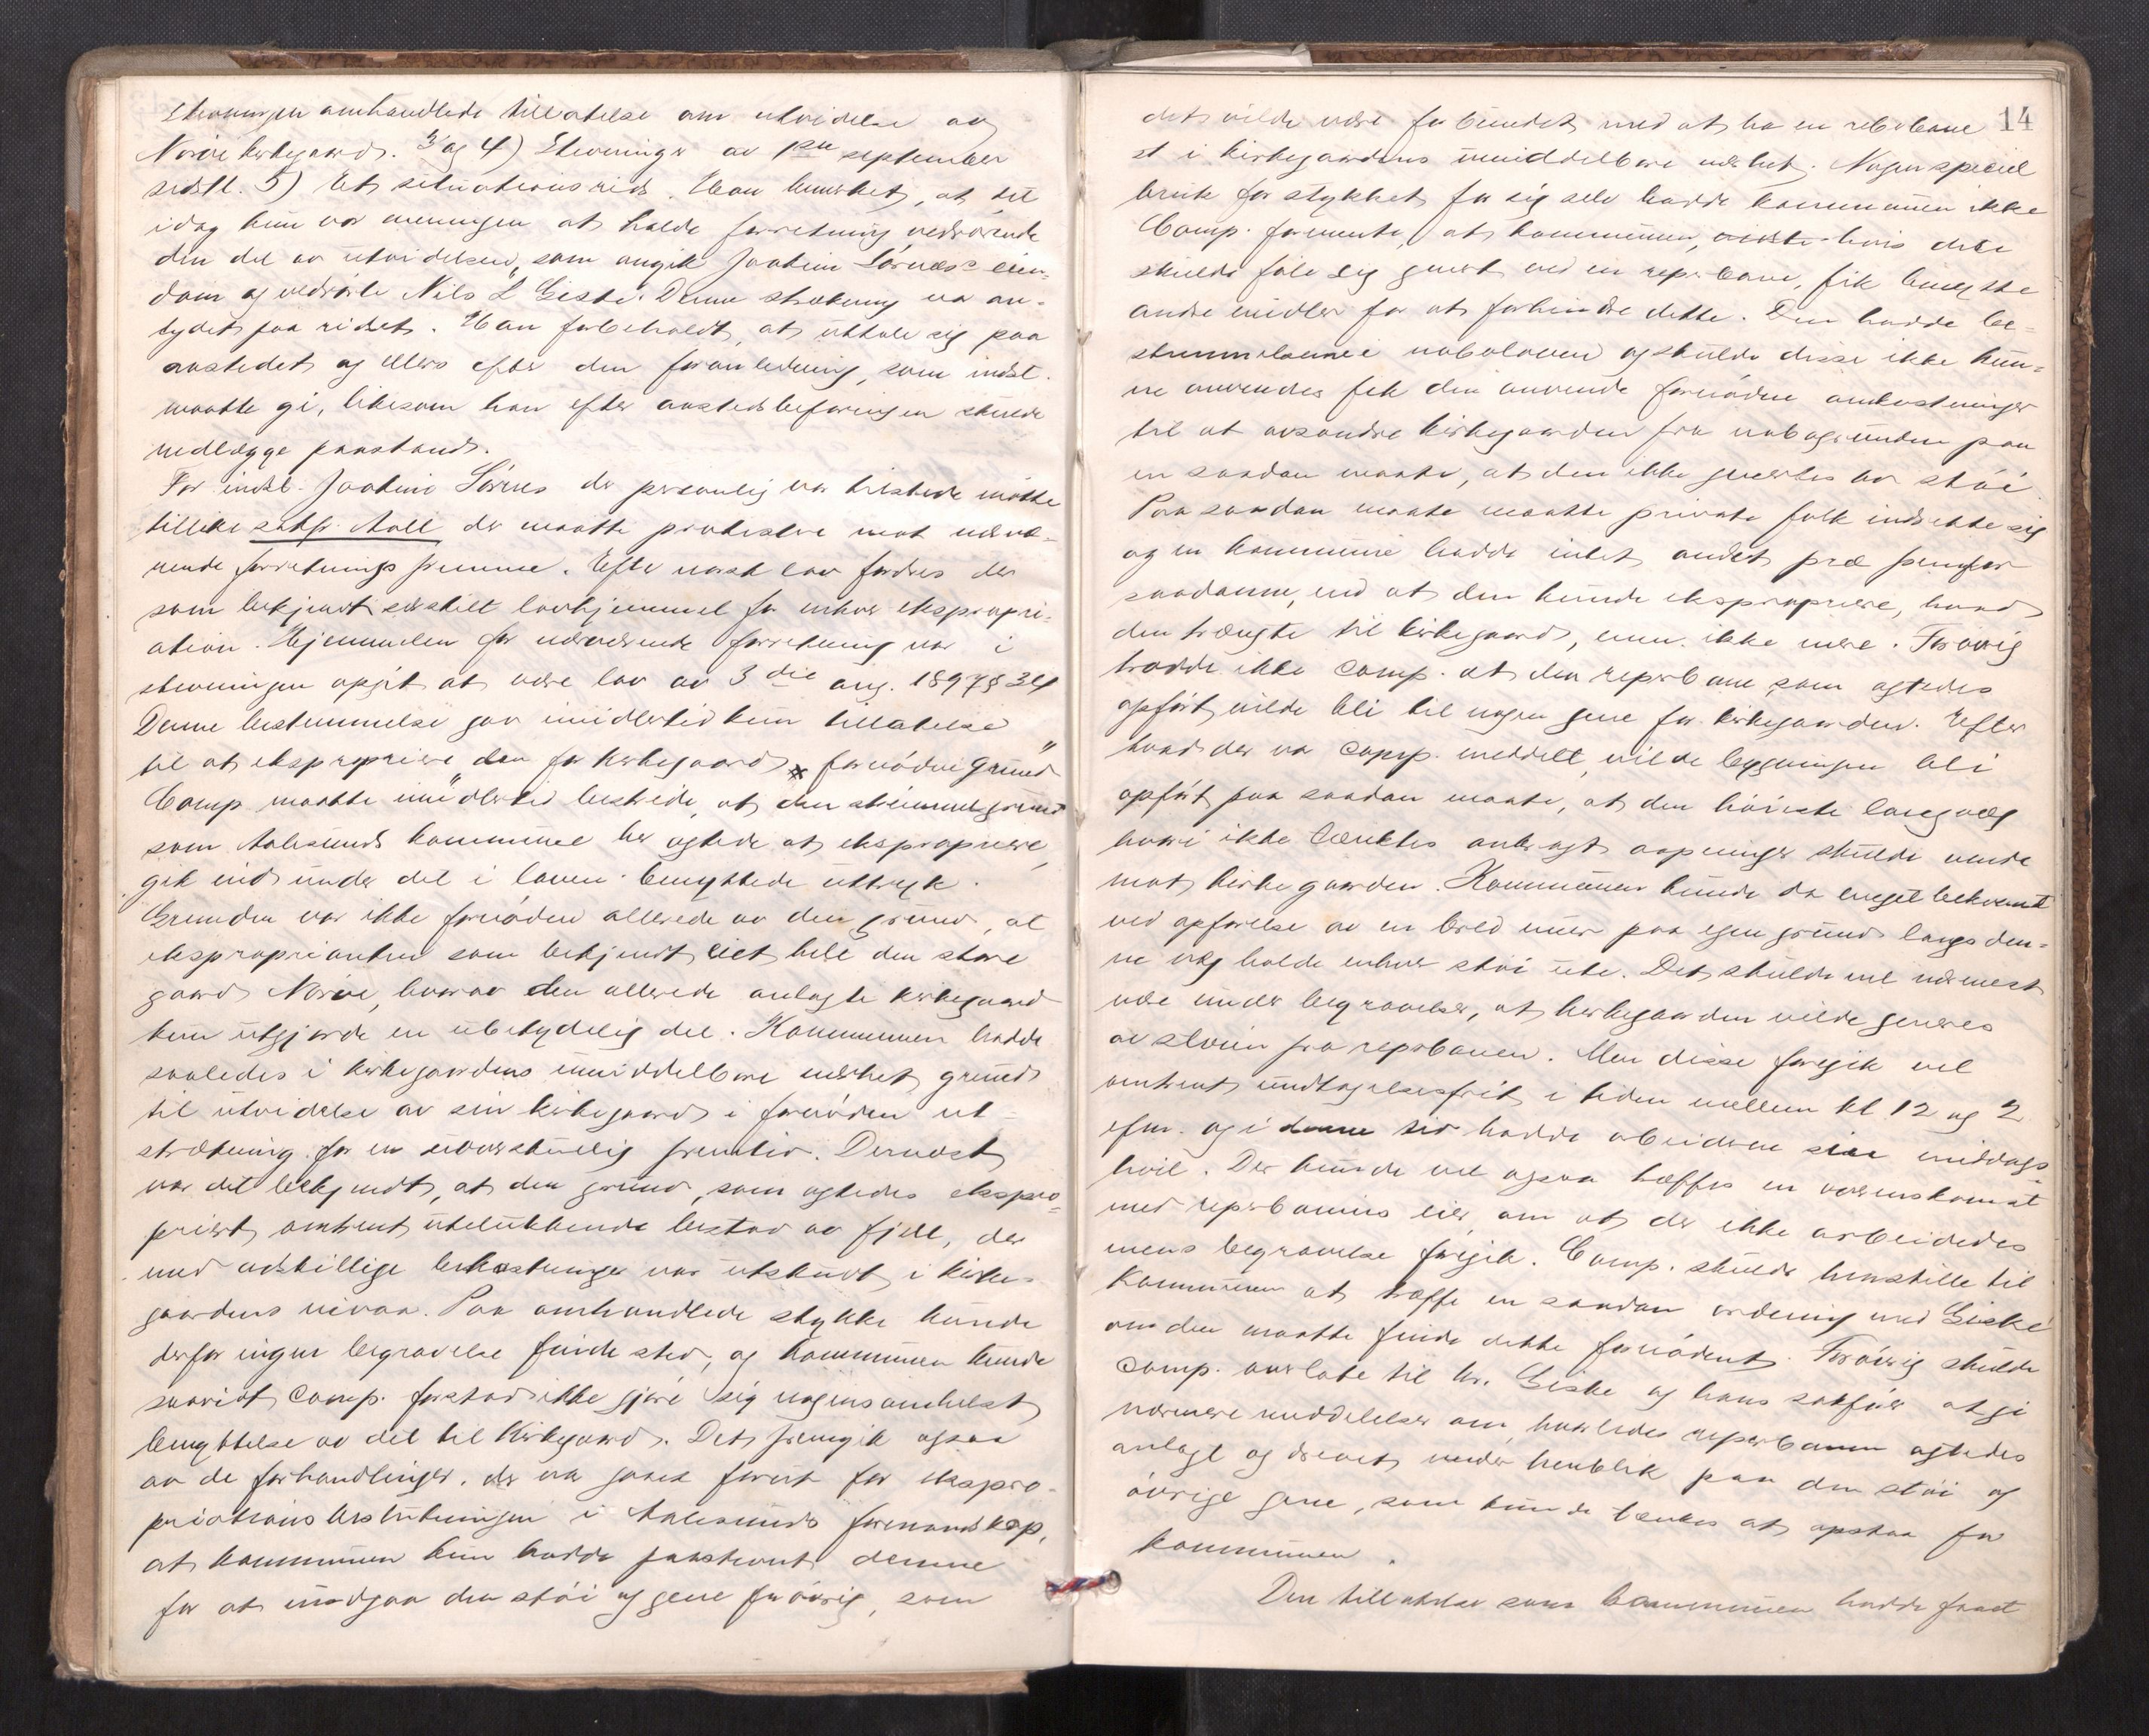 Stevningen omhandlede tillatelse om utvidelse av
Nörve kirkegaard. 3 og 4) Stevninger av 1ste september
sidstl. 5) Et situationsrids. Han bemerket, at det
idag kun var meningen at holde forretning vedrörende
den del av utvidelsen, som angik Joakim Sörnæs' eien-
dom og vedrörte Nils L Giske. Denne strækning var an-
tydet paa ridset. Han forbeholdt, at uttale sig paa
aastedet og ellers efter den foranledning, som indst.
maatte gi, likesom han efter aastedsbefaringen skulde
nedlægge paastand.
For indst. Joakim Sörnes der personlig var tilstede mötte
tillike sakför. Aall der maatte protestere mot nærvæ-
rende forretnings fremme. Efter norsk lov fordres der
som bekjendt særskilt lovhjemmel for enhver ekspropri-
ation. Hjemmelen for nærværende forretning var i
stevningen opgit at være lov av 3die aug. 1897 § 34
Denne bestemmelse gav imidlertid kun tillatelse
til at ekspropriere den for kirkegaard "fornödne grund"
Comp maatte imidlertid bestride, at den strimmel grund
som Aalesunds kommune her agtede at ekspropriere,
gik ind under det i loven benyttede uttryk.
Grunden var ikke fornöden allerede av den grund, at
ekspropriantend som bekjendt eiet hele den store
gaard Nörve, hvorav den allerede anlagte kirkegaard
kun utgjorde en ubetydelig del. Kommunen hadde
saaledes i kirkegaardens umiddelbare nærhet grund
til utvidelse av sin kirkegaard i fornöden ut-
strækning for en uoverskuelig fremtid. Dernæst
var det bekjendt, at den grund, som agtedes ekspro-
priert omtrent utelukkende bestod av fjell, der
med adskillige bekostninger var utskudt i kirke-
gaardens nivaa. Paa omhandlede stykke kunde
derfor ingen begravelse finde sted, og kommunen kunde
saavidt comp. forstod ikke gjöre sig nogensomhelst
benyttelse av det til kirkegaard. Det fremgik ogsaa
av de forhandlinger, der var gaaet forut for ekspro-
priationsbeslutningen i Aalesunds formandskap,
at kommunen kun hadde paastevnt denne
for at undgaa den stöi og gene forövrig, som
14
det vilde være forbundet med at ha en reberbane
st i kirkegaardens umiddelbare nærhet. Nogen speciel
bruk for stykket for sig selv hadde kommunen ikke
Comp. formente, at kommunen, hvis dete
skulde föle sig genert ved en reperbane, fik benytte
andre midler for at forhindre dette. Den hadde be-
stemmelserne i naboloven og skulde disse ikke kun-
ne anvendes fik den anvende fornödne omkostninger
til at avsondre kirkegaarden fra nabogrunden paa
en saadan maate, at den ikke genertes av stöi.
Paa saadan maate maatte private folk indrette sig
og en kommune hadde intet andet præ fremfor
saadanne, end at den kunde ekspropriere, hvad
den trængte til kirkegaard, men ikke mere. Forövrig
trodde ikke comp. at den reperbane som agtedes
opfört vilde bli til nogen gene for kirkegaarden. Efter
hvad der var comp. meddelt, vilde bygningen bli
opfört paa saadan maate, at den höieste langvæg
hvori ikke tænktes anbragt aapninger skulde vende
mot kirkegaarden. Kommunen kunde da meget bekvemt
ved opförelse av en bred mur paa egen grund langs den-
ne væg holde enhver stöi ute. Det skulde vel nærmest
være under begravelser, at kirkegaarden vilde generes
av stöien fra reperbanen. Men disse foregik vel
omtrent undtagelsesfrit i tiden mellem kl 12 og 2
efm. og i denne tid hadde arbeiderne sin middags-
hvil. Der kunde vel ogsaa træffes en overenskomst
med reperbanens eier, om at der ikke arbeidedes
mens begravelse foregik. Comp. skulde henstille til
Kommunen at træffe en saadan ordning med Giske
om den maatte finde dette fornödent. Forövrig skulde
comp. overlate til hr. Giske og hans sakförer at gi
nærmere meddelelser om, hvorledes reperbanen agtedes
anlagt og drevet under henblik paa den stöi og
övrige gene, som kunde tænkes at opstaa for
kommunen.
Den tillatelse som kommunen hadde faaet